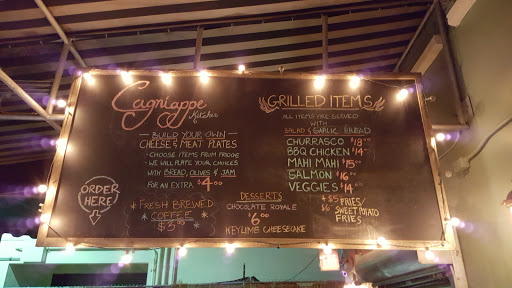 Cagniappe
Kitchen
BUILD YOUR OWN
CHEESE & MEAT PLATES
- CHOOSE ITEMS FROM FRIDGE
- WE WILL PLATE YOUR CHOICES
WITH BREAD, OLIVES & JAM
FOR AN EXTRA $4.00
ORDER
HERE!
* FRESH BREWED *
* COFFEE *
DESSERTS
CHOCOLATE ROYALE
$6.00
KEYLIME CHEESECAKE
GRILLED ITEMS
ALL ITEMS ARE SERVED
WITH
SALAD & GARLIC BREAD
CHURRASCO $18.00
BBQ CHICKEN $14.00
MAHI MAHI $15.00
SALMON $16.00
VEGGIES $14.00
+ $5 FRIES/
$6 SWEET POTATO
FRIES